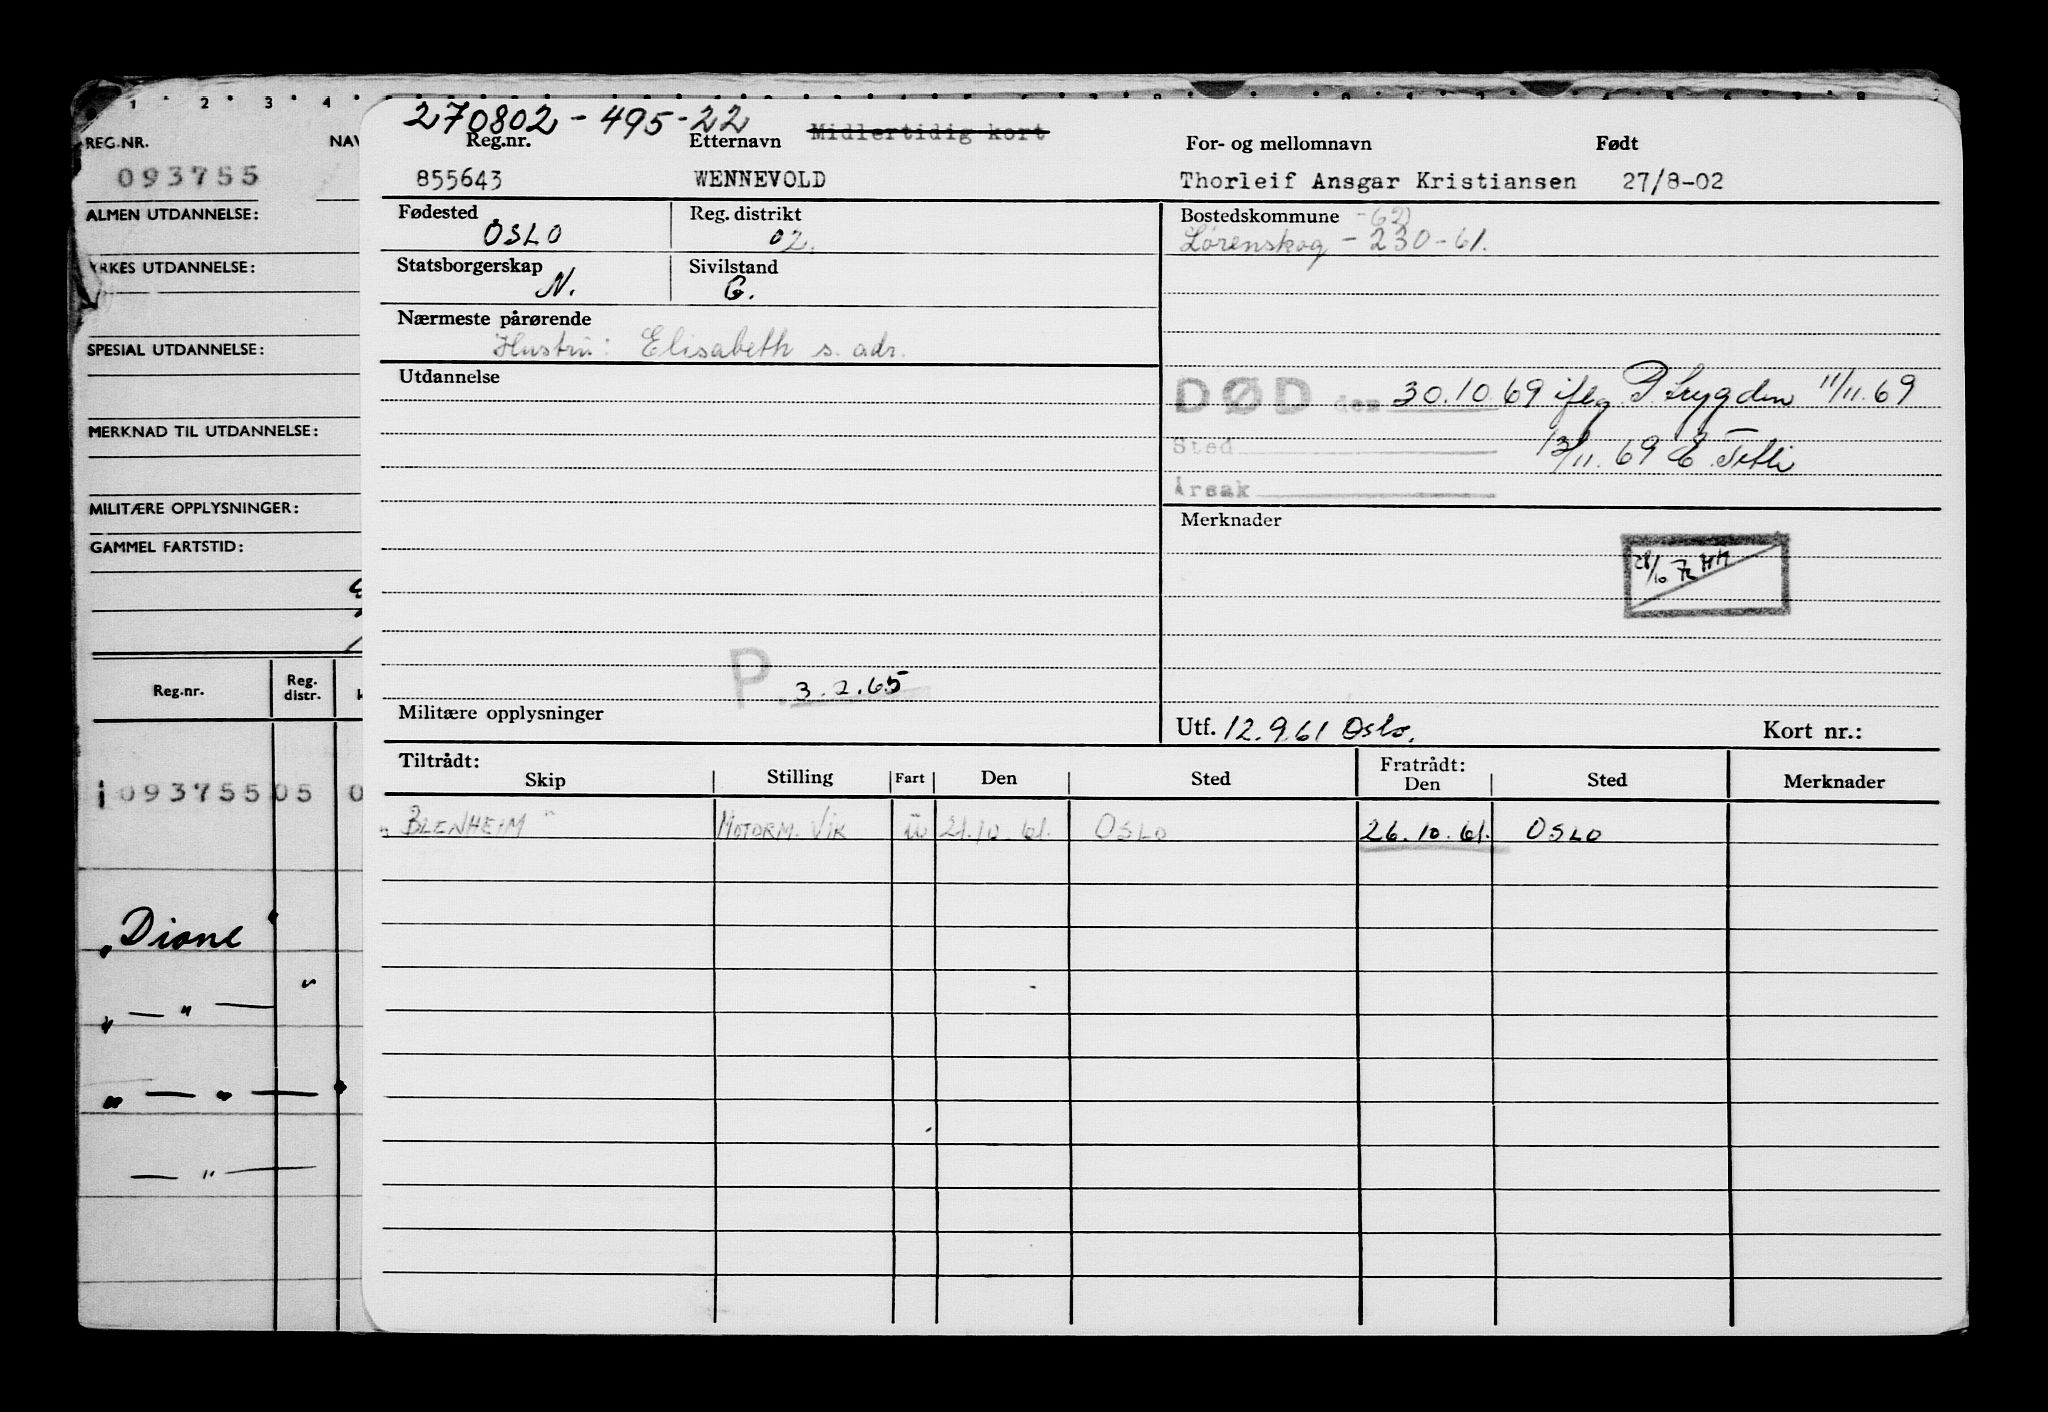 1 2 3 4
REG.NR. NAV
093755
ALMEN UTDANNELSE:
YRKES UTDANNELSE:
SPESIAL UTDANNELSE:
MERKNAD TIL UTDANNELSE:
MILITÆRE OPPLYSNINGER:
GAMMEL FARTSTID:
Reg.nr. Reg. distr.
093755 05 0
„Diane"
„ — " —
„ — " —
— " —
270802-495-22 Midlertidig kort
Reg.nr. Etternavn For- og mellomnavn Født
855643 WENNEVOLD Thorleif Ansgar Kristiansen 27/8-02
Fødested Reg. distrikt Bostedskommune -62
OSLO 02. Lørenskog - 230-61.
Statsborgerskap Sivilstand
N. G.
Nærmeste pårørende
Hustru: Elisabeth s. adr.
Utdannelse
DØD den 30.10.69 iflg. P. trygden 11/11.69
Sted 13/11.69
Årsak
Merknader
28/10 72 HH
P 3.2.65
Militære opplysninger
Utf. 12.9.61 Oslo. Kort nr.:
Tiltrådt: Fratrådt:
Skip Stilling Fart Den Sted Den Sted Merknader
„BLENHEIM" MOTORM. VIK U 21.10.61. OSLO 26.10.61. OSLO